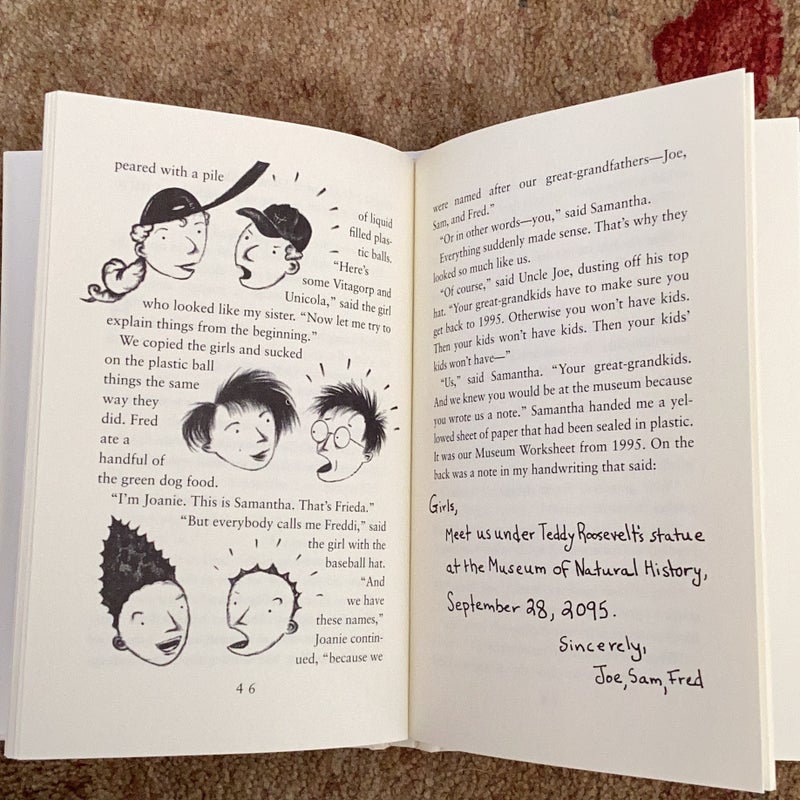 peared with a pile
of liquid
filled plas-
tic balls.
“Here’s
some Vitagorp and
Unicola,” said the girl
who looked like my sister. “Now let me try to
explain things from the beginning.”
We copied the girls and sucked
on the plastic ball
things the same
way they
did. Fred
ate a
handful of
the green dog food.
“I’m Joanie. This is Samantha. That’s Frieda.”
“But everybody calls me Freddi,” said
the girl with the
baseball hat.
“And
we have
these names,”
Joanie contin-
ued, “because we
46
were named after our great-grandfathers—Joe,
Sam, and Fred.”
“Or in other words—you,” said Samantha.
Everything suddenly made sense. That’s why they
looked so much like us.
“Of course,” said Uncle Joe, dusting off his top
hat. “Your great-grandkids have to make sure you
get back to 1995. Otherwise you won’t have kids.
Then your kids won’t have kids. Then your kids’
kids won’t have—”
“Us,” said Samantha. “Your great-grandkids.
And we knew you would be at the museum because
you wrote us a note.” Samantha handed me a yel-
lowed sheet of paper that had been sealed in plastic.
It was our Museum Worksheet from 1995. On the
back was a note in my handwriting that said:
Girls,
Meet us under Teddy Roosevelt’s statue
at the Museum of Natural History,
September 28, 2095.
Sincerely,
Joe, Sam, Fred